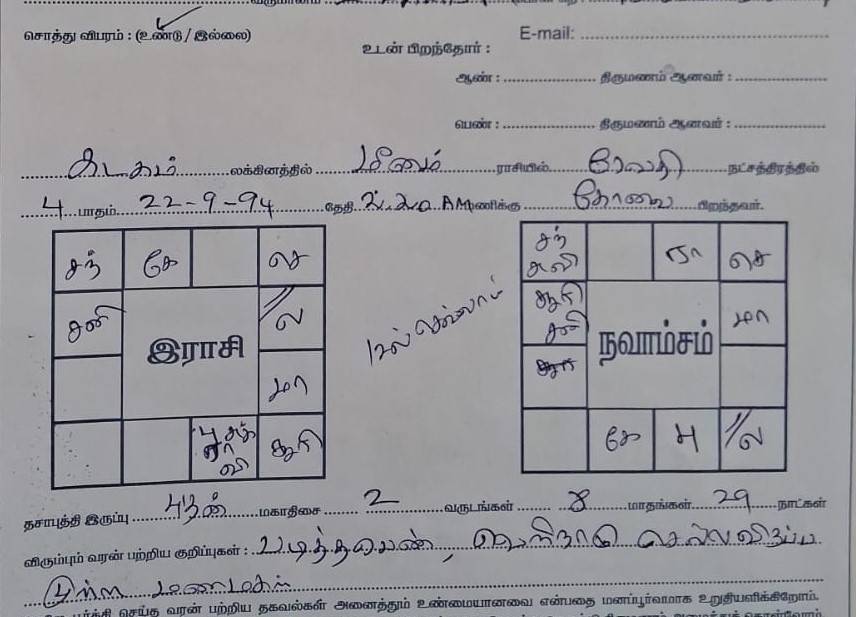 சொத்து விபரம் : (உண்டு / இல்லை)
E-mail: ..............................
உடன் பிறந்தோர் :
ஆண் : .................... திருமணம் ஆனவர் : ....................
பெண் : .................... திருமணம் ஆனவர் : ....................
கடகம் லக்கினத்தில் மீனம் ராசியில் ரேவதி நட்சத்திரத்தில்
4 பாதம் 22-9-94 தேதி 2.20 AM மணிக்கு கோவை பிறந்தவர்.
சந் கே செ
சனி ல
இராசி
மா
சுக் ரா வி சூரி
12ல் செவ்வாய்
சந் ரா செ
சூரி சனி மா
நவாம்சம்
கே ல
தசாபுத்தி இருப்பு புதன் மகாதிசை 2 வருடங்கள் 8 மாதங்கள் 29 நாட்கள்
விரும்பும் வரன் பற்றிய குறிப்புகள் : படித்த பெண், வெளிநாடு செல்ல விருப்ப
முள்ள மணமகள்
பூர்த்தி செய்த வரன் பற்றிய தகவல்கள் அனைத்தும் உண்மையானவை என்பதை மனப்பூர்வமாக உறுதியளிக்கிறோம்.